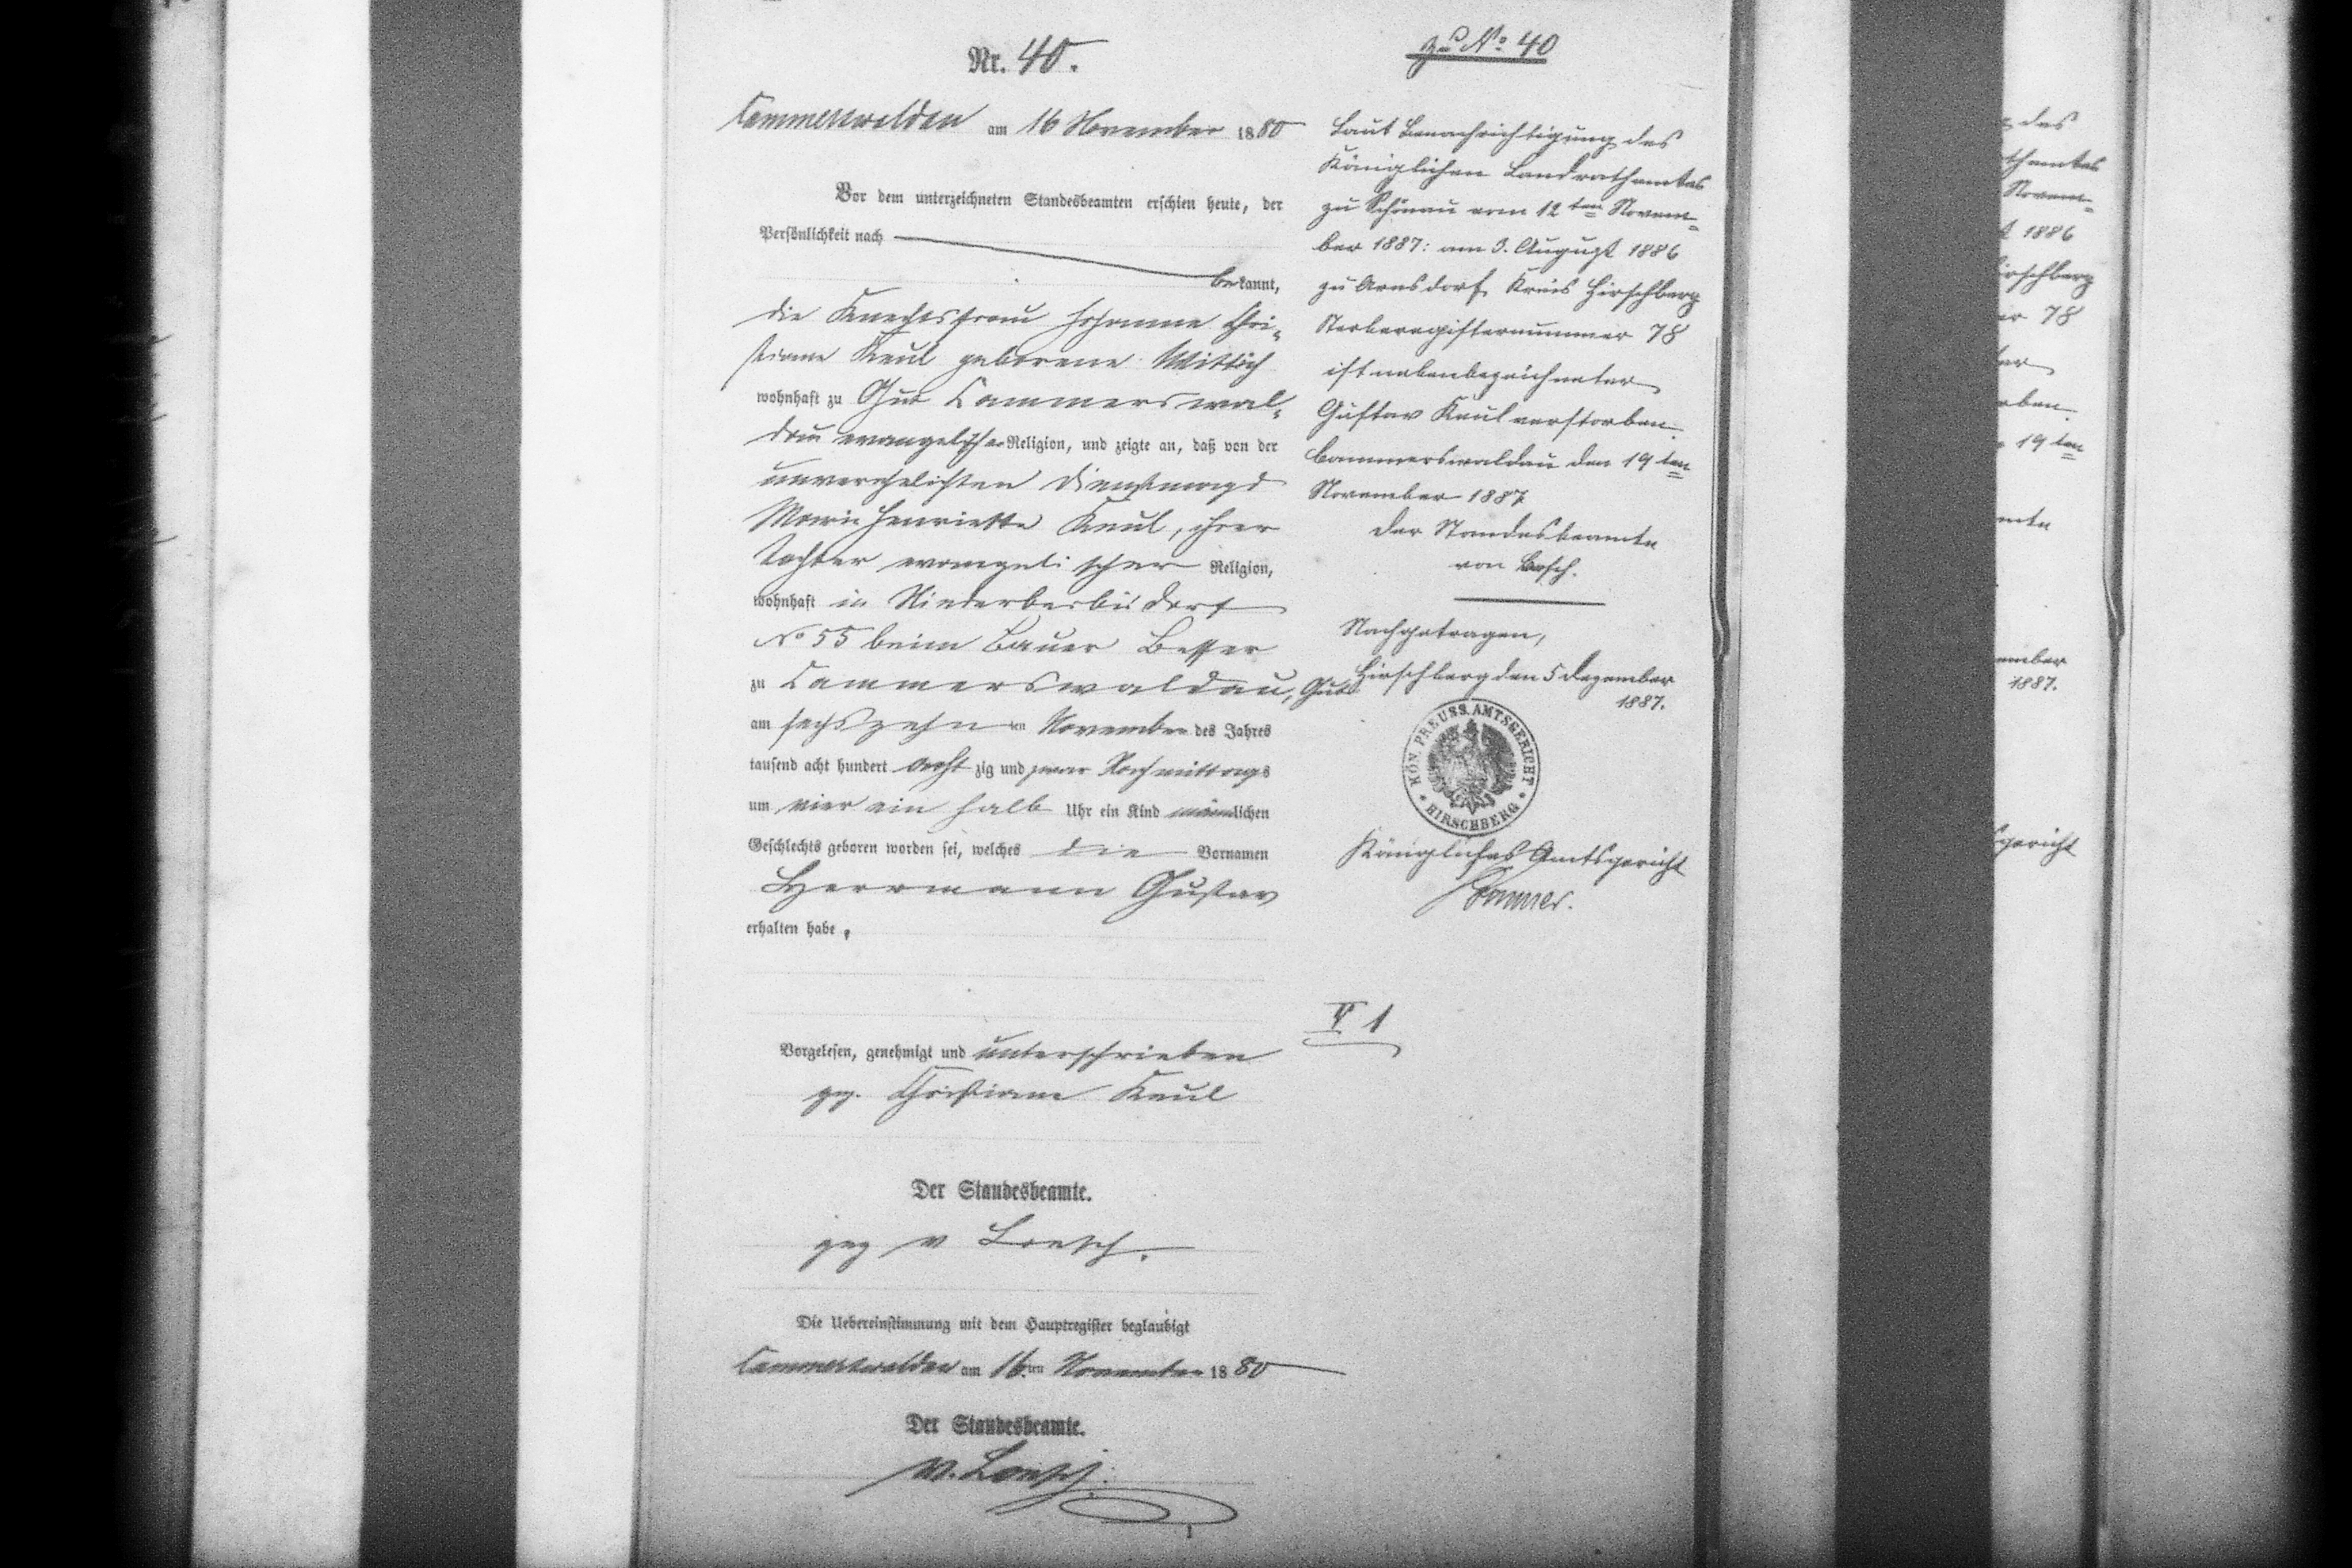 Nr. 40.
Cammerswaldau am 16 November 1880
Vor dem unterzeichneten Standesbeamten erschien heute, der
Persönlichkeit nach
bekannt,
die Knechtsfrau Johanne Chri-
stiane Keul geborene Wittich
wohnhaft zu Gut Cammerswal-
dau evangelischer Religion, und zeigte an, daß von der
unverehelichten Dienstmagd
Marie Henriette Keul, ihrer
Tochter evangelischer Religion,
wohnhaft in Niederberbisdorf
No 55 beim Bauer Besser
zu Cammerswaldau, Gut
am sechszehn ten November des Jahres
tausend acht hundert acht zig und zwar Nachmittags
um vier ein halb Uhr ein Kind männlichen
Geschlechts geboren worden sei, welches die Vornamen
Herrmann Gustav
erhalten habe.
Vorgelesen, genehmigt und unterschrieben
gez. Christiane Keul
Der Standesbeamte.
gez v Loesch.
Die Uebereinstimmung mit dem Hauptregister beglaubigt
Cammerswaldau am 16ten November 1880
Der Standesbeamte.
v. Loesch.
1
zu No 40
Laut Benachrichtigung des
Königlichen Landrathamtes
zu Schönau vom 12ten Novem-
ber 1887: am 3. August 1886
zu Arnsdorf Kreis Hirschberg
Sterberegisternummer 78
ist nebenbezeichneter
Gustav Keul verstorben.
Cammerswaldau den 19ten
November 1887
Der Standesbeamte
von Loesch.
Nachgetragen,
Hirschberg den 5 Dezember
1887.
KÖN. PREUSS. AMTSGERICHT
* HIRSCHBERG *
Königliches Amtsgericht
V 1
des
thamtes
Novem-
t 1886
irschberg
er 78
ter
rben.
19ten
amte
ember
1887.
gericht